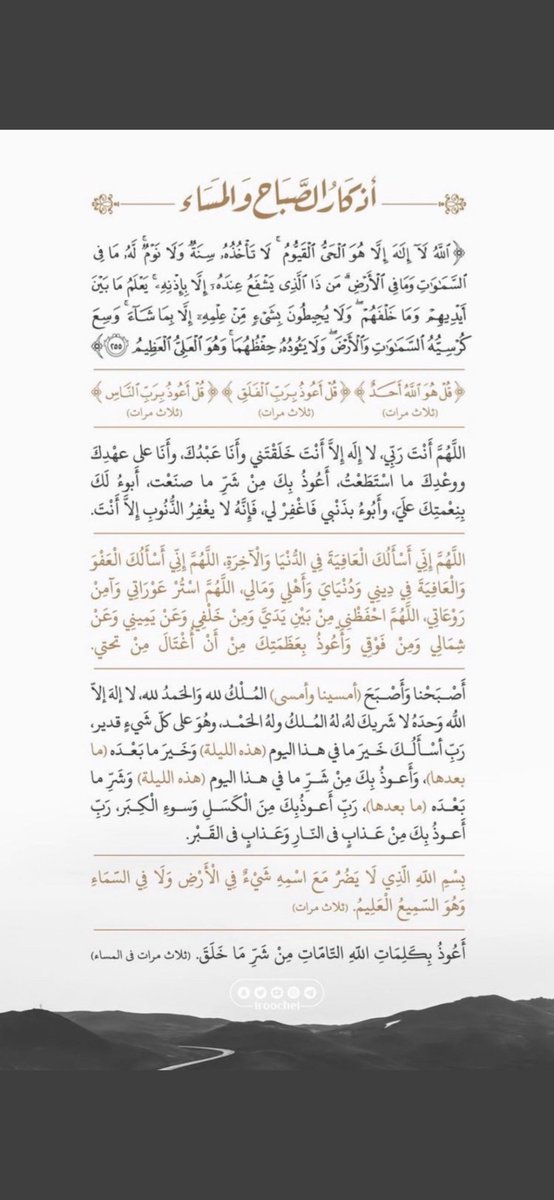 أذكار الصَّبَاح وَالمَسَاء
﴿ ٱللَّهُ لَآ إِلَٰهَ إِلَّا هُوَ ٱلْحَىُّ ٱلْقَيُّومُ ۚ لَا تَأْخُذُهُۥ سِنَةٌ وَلَا نَوْمٌ ۚ لَّهُۥ مَا فِى
ٱلسَّمَٰوَٰتِ وَمَا فِى ٱلْأَرْضِ ۗ مَن ذَا ٱلَّذِى يَشْفَعُ عِندَهُۥٓ إِلَّا بِإِذْنِهِۦ ۚ يَعْلَمُ مَا بَيْنَ
أَيْدِيهِمْ وَمَا خَلْفَهُمْ ۖ وَلَا يُحِيطُونَ بِشَىْءٍ مِّنْ عِلْمِهِۦٓ إِلَّا بِمَا شَآءَ ۚ وَسِعَ
كُرْسِيُّهُ ٱلسَّمَٰوَٰتِ وَٱلْأَرْضَ ۖ وَلَا يَـُٔودُهُۥ حِفْظُهُمَا ۚ وَهُوَ ٱلْعَلِىُّ ٱلْعَظِيمُ ٢٥٥ ﴾
﴿ قُلْ هُوَ ٱللَّهُ أَحَدٌ ﴾ ﴿ قُلْ أَعُوذُ بِرَبِّ ٱلْفَلَقِ ﴾ ﴿ قُلْ أَعُوذُ بِرَبِّ ٱلنَّاسِ ﴾
(ثلاث مرات) (ثلاث مرات) (ثلاث مرات)
اللَّهُمَّ أَنْتَ رَبِّي، لا إِلَه إِلاَّ أَنْتَ خَلَقْتَني وأَنَا عَبْدُكَ، وأَنَا على عهْدِكَ
ووعْدِكَ ما اسْتَطَعْتُ، أَعُوذُ بِكَ مِنْ شَرِّ ما صنَعْتُ، أَبوءُ لَكَ
بِنِعْمتِكَ علَيَّ، وأَبُوءُ بذَنْبي فَاغْفِرْ لي، فَإِنَّهُ لا يغْفِرُ الذُّنُوبِ إِلاَّ أَنْتَ.
اللَّهُمَّ إِنِّي أَسْأَلُكَ الْعَافِيَةَ فِي الدُّنْيَا وَالْآخِرَةِ، اللَّهُمَّ إِنِّي أَسْأَلُكَ الْعَفْوَ
وَالْعَافِيَةَ فِي دِينِي وَدُنْيَايَ وَأَهْلِي وَمَالِي، اللَّهُمَّ اسْتُرْ عَوْرَاتِي وَآمِنْ
رَوْعَاتِي، اللَّهُمَّ احْفَظْنِي مِنْ بَيْنِ يَدَيَّ وَمِنْ خَلْفِي وَعَنْ يَمِينِي وَعَنْ
شِمَالِي وَمِنْ فَوْقِي وَأَعُوذُ بِعَظَمَتِكَ مِنْ أَنْ أُغْتَالَ مِنْ تحتي.
أَصْبَحْنا وَأَصْبَحَ (أمسينا وأمسى) المُلْكُ لله وَالحَمدُ لله، لا إلهَ إلاّ
اللّه وَحدَهُ لا شَريكَ لهُ، لهُ المُلكُ ولهُ الحَمْـد، وهُوَ على كلّ شَيءٍ قدير،
رَبِّ أسْـأَلُـكَ خَـيرَ ما في هـذا اليوم (هذه الليلة) وَخَيرَ ما بَعْـدَه (ما
بعدها)، وَأَعـوذُ بِكَ مِنْ شَـرِّ ما في هـذا اليوم (هذه الليلة) وَشَرِّ ما
بَعْـدَه (ما بعدها)، رَبِّ أَعـوذُبِكَ مِنَ الْكَسَـلِ وَسـوءِ الْكِبَـر، رَبِّ
أَعـوذُ بِكَ مِنْ عَـذابٍ في النّـارِ وَعَـذابٍ في القَـبْر.
بِسْمِ اللَّهِ الَّذِي لَا يَضُرُّ مَعَ اسْمِهِ شَيْءٌ فِي الْأَرْضِ وَلَا فِي السَّمَاءِ
وَهُوَ السَّمِيعُ الْعَلِيمُ. (ثلاث مرات)
أَعُوذُ بِكَلِمَاتِ اللَّهِ التَّامَّاتِ مِنْ شَرِّ مَا خَلَقَ. (ثلاث مرات في المساء)
iroochel